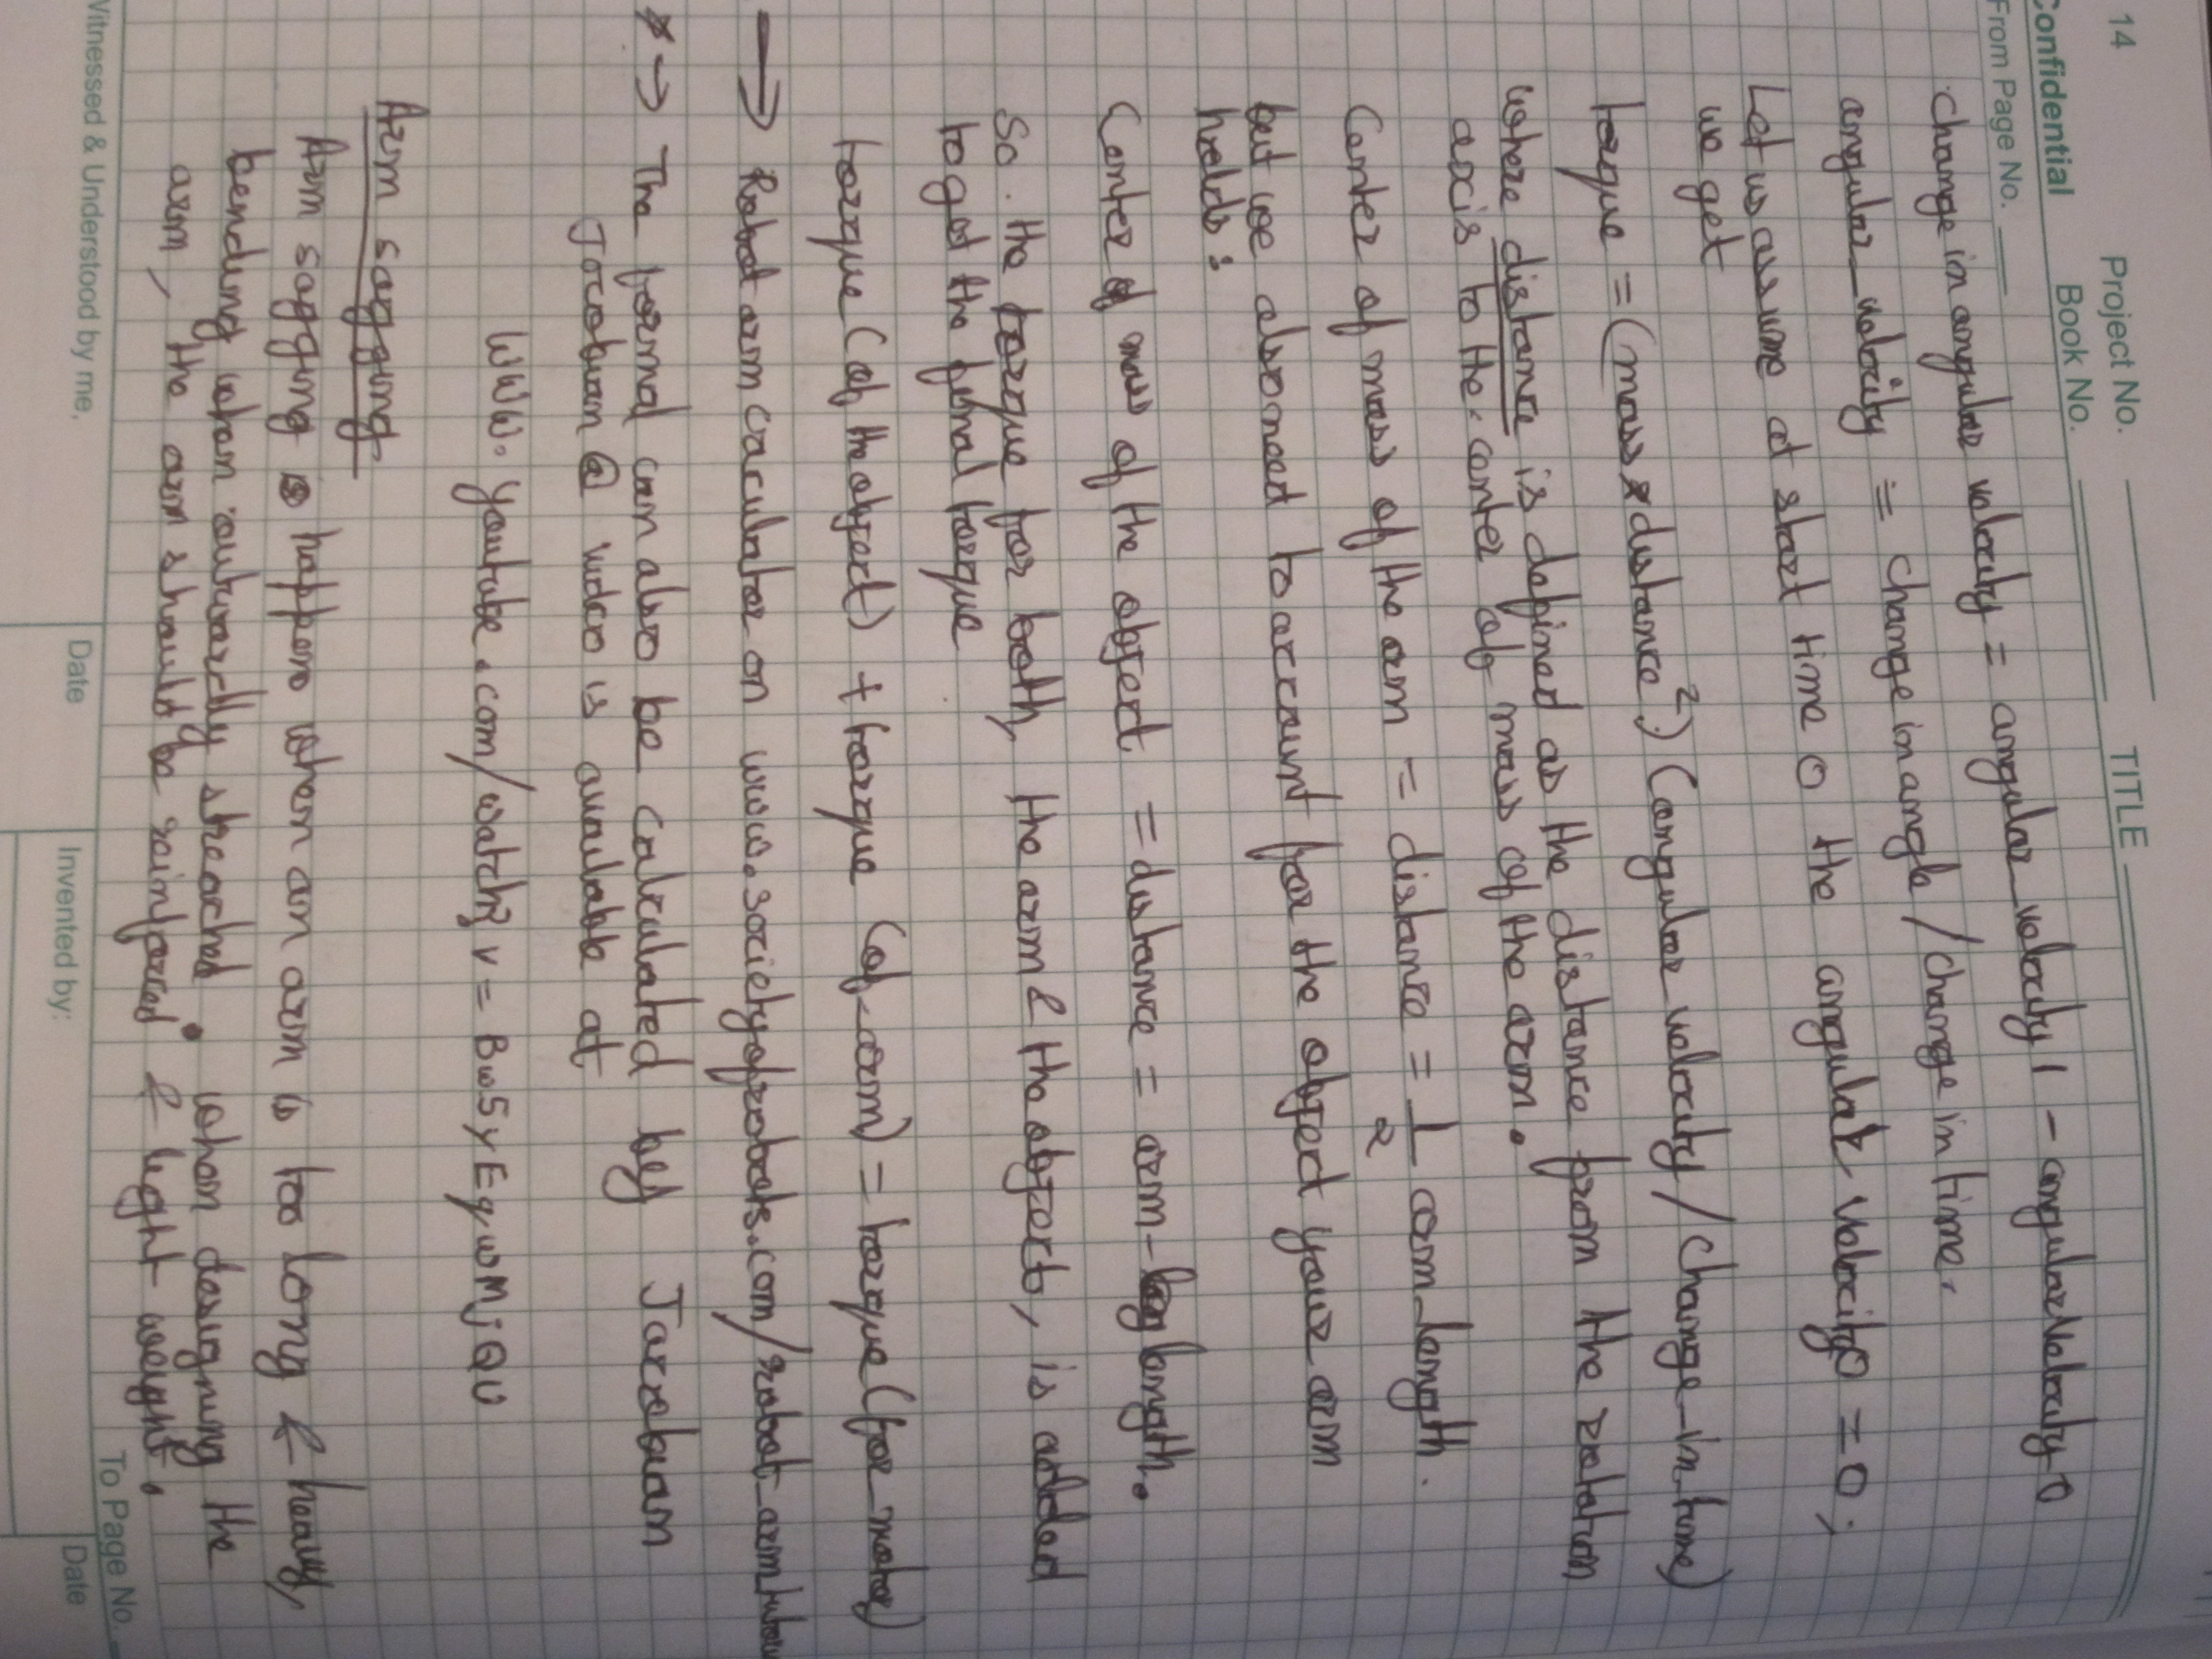 14 Project No. TITLE
Confidential Book No.
From Page No.
change in angular velocity = angular_velocity 1 - angular velocity 0
angular_velocity = change in angle / change in time.
Let us assume at start time 0 the angular velocity0 = 0 ;
we get
torque = (mass * distance²) (angular velocity / change_in_time)
where distance is defined as the distance from the rotation
axis to the center of mass of the arm.
Center of mass of the arm = distance = 1/2 arm_length.
but we also need to account for the object your arm
holds :
Center of mass of the object = distance = arm-length.
So the torque for both, the arm & the objects, is added
to get the final torque
torque (of the object) + torque (of-arm) = torque (for-motor)
→ Robot arm caculator on www.societyofrobots.com/robot_arm_
* → The formal can also be calculated by Jacobian
Jacobian @ video is available at
www.youtube.com/watch?v=Bw5yEqwMjQU
Arm sagging
Arm sagging happens when an arm is too long & heavy,
bending when outwardly streached. When designing the
arm, the arm should be reinforced & light-weight.
Witnessed & Understood by me, Date Invented by: Date
To Page No.